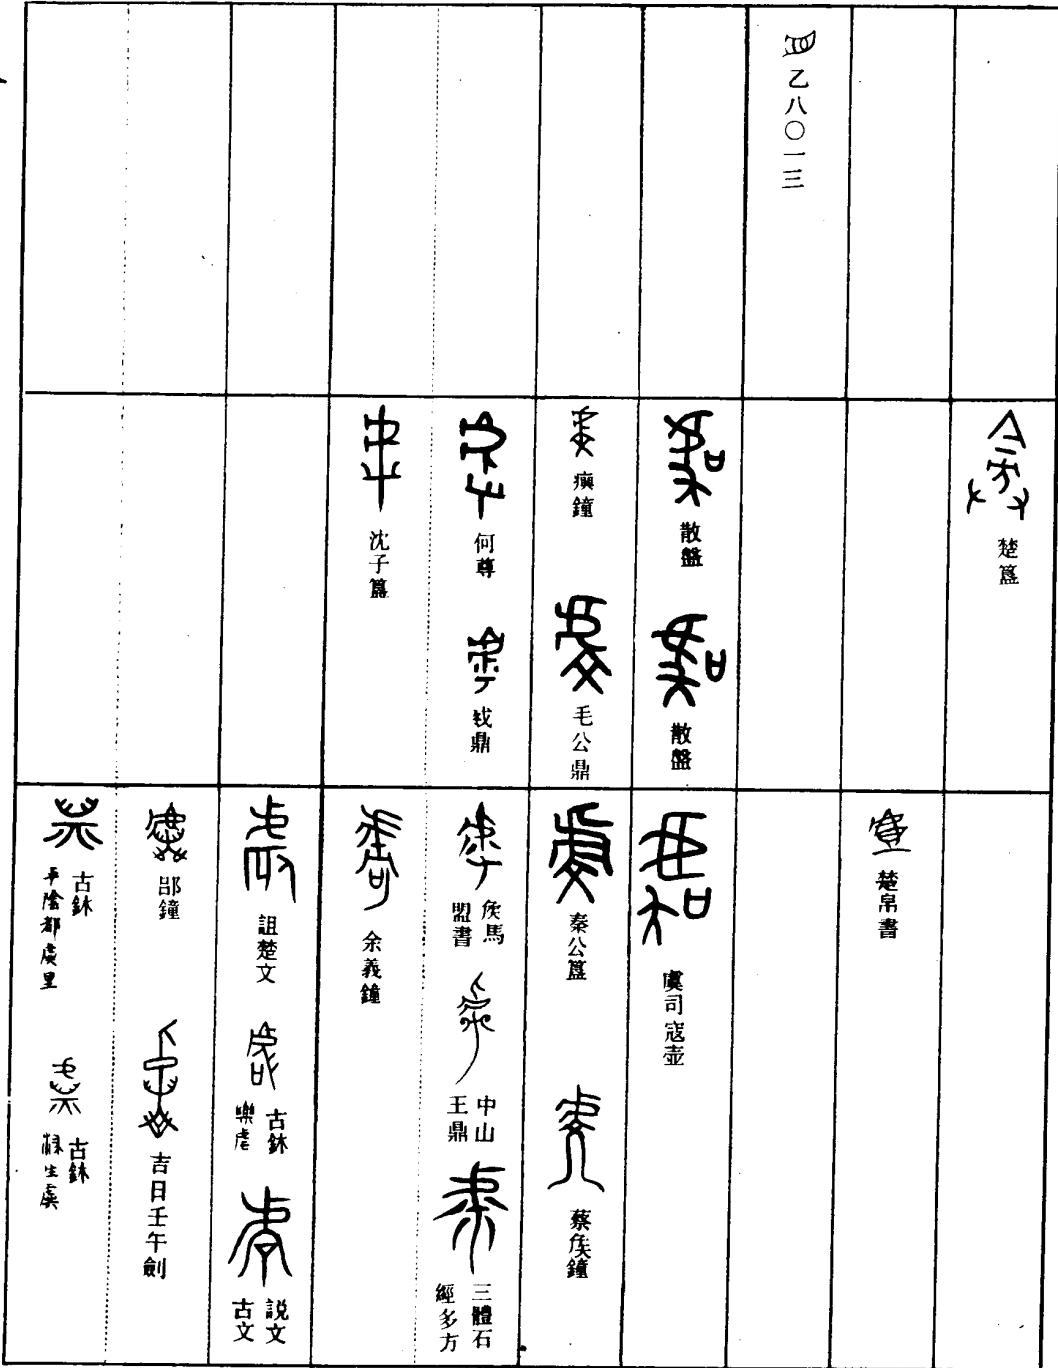 楚簋
楚帛書
乙八〇一三
散盤
散盤
虞司寇壺
𤼈鐘
毛公鼎
秦公簋
蔡矦鐘
何尊
㦰鼎
矦馬
盟書
中山
王鼎
三體石
經多方
沈子簋
余義鐘
詛楚文
古鉨
樂虐
説文
古文
郘鐘
吉日壬午劍
古鉨
平陰都虞里
古鉨
生虞